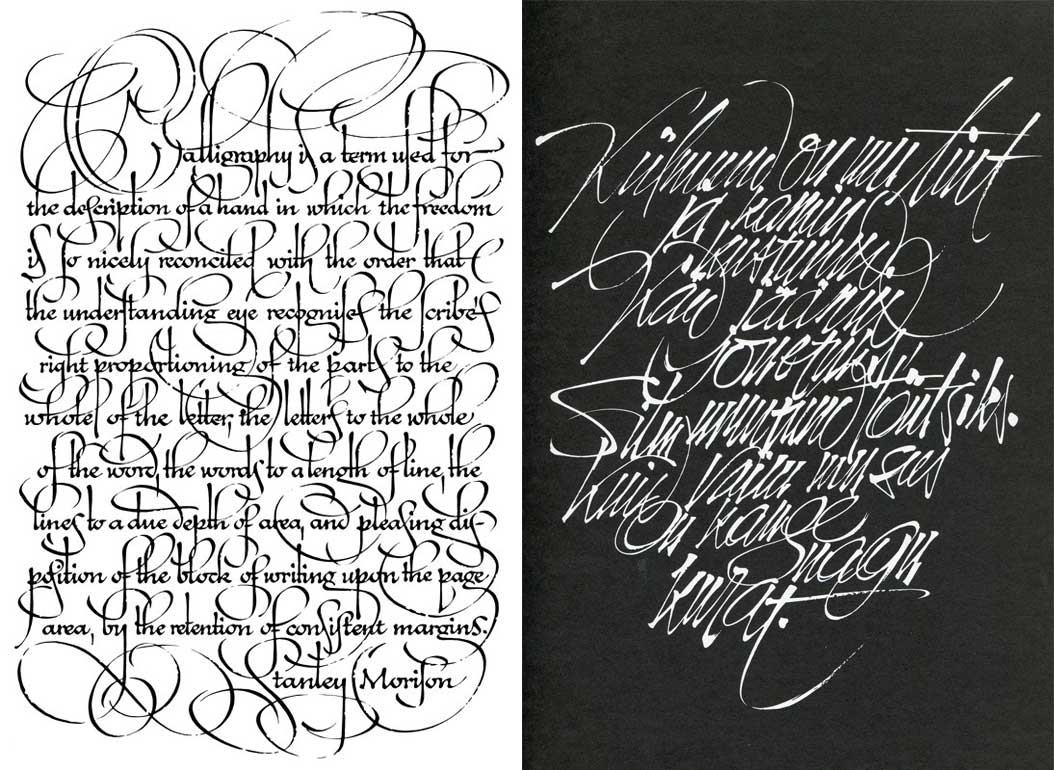 Calligraphy is a term used for
the description of a hand in which the freedom
is so nicely reconciled with the order that
the understanding eye recognises the scribes
right proportioning of the parts to the
wholes of the letter, the letters to the whole
of the word, the words to a length of line, the
lines to a due depth of area, and pleasing dis-
position of the block of writing upon the page
area, by the retention of consistent margins.
Stanley Morison
Külmund on mu tint
ja kamin
kustunud.
jäänud
Silm muutund
Kuid vaim mu sees
on kange
nagu
kurat.